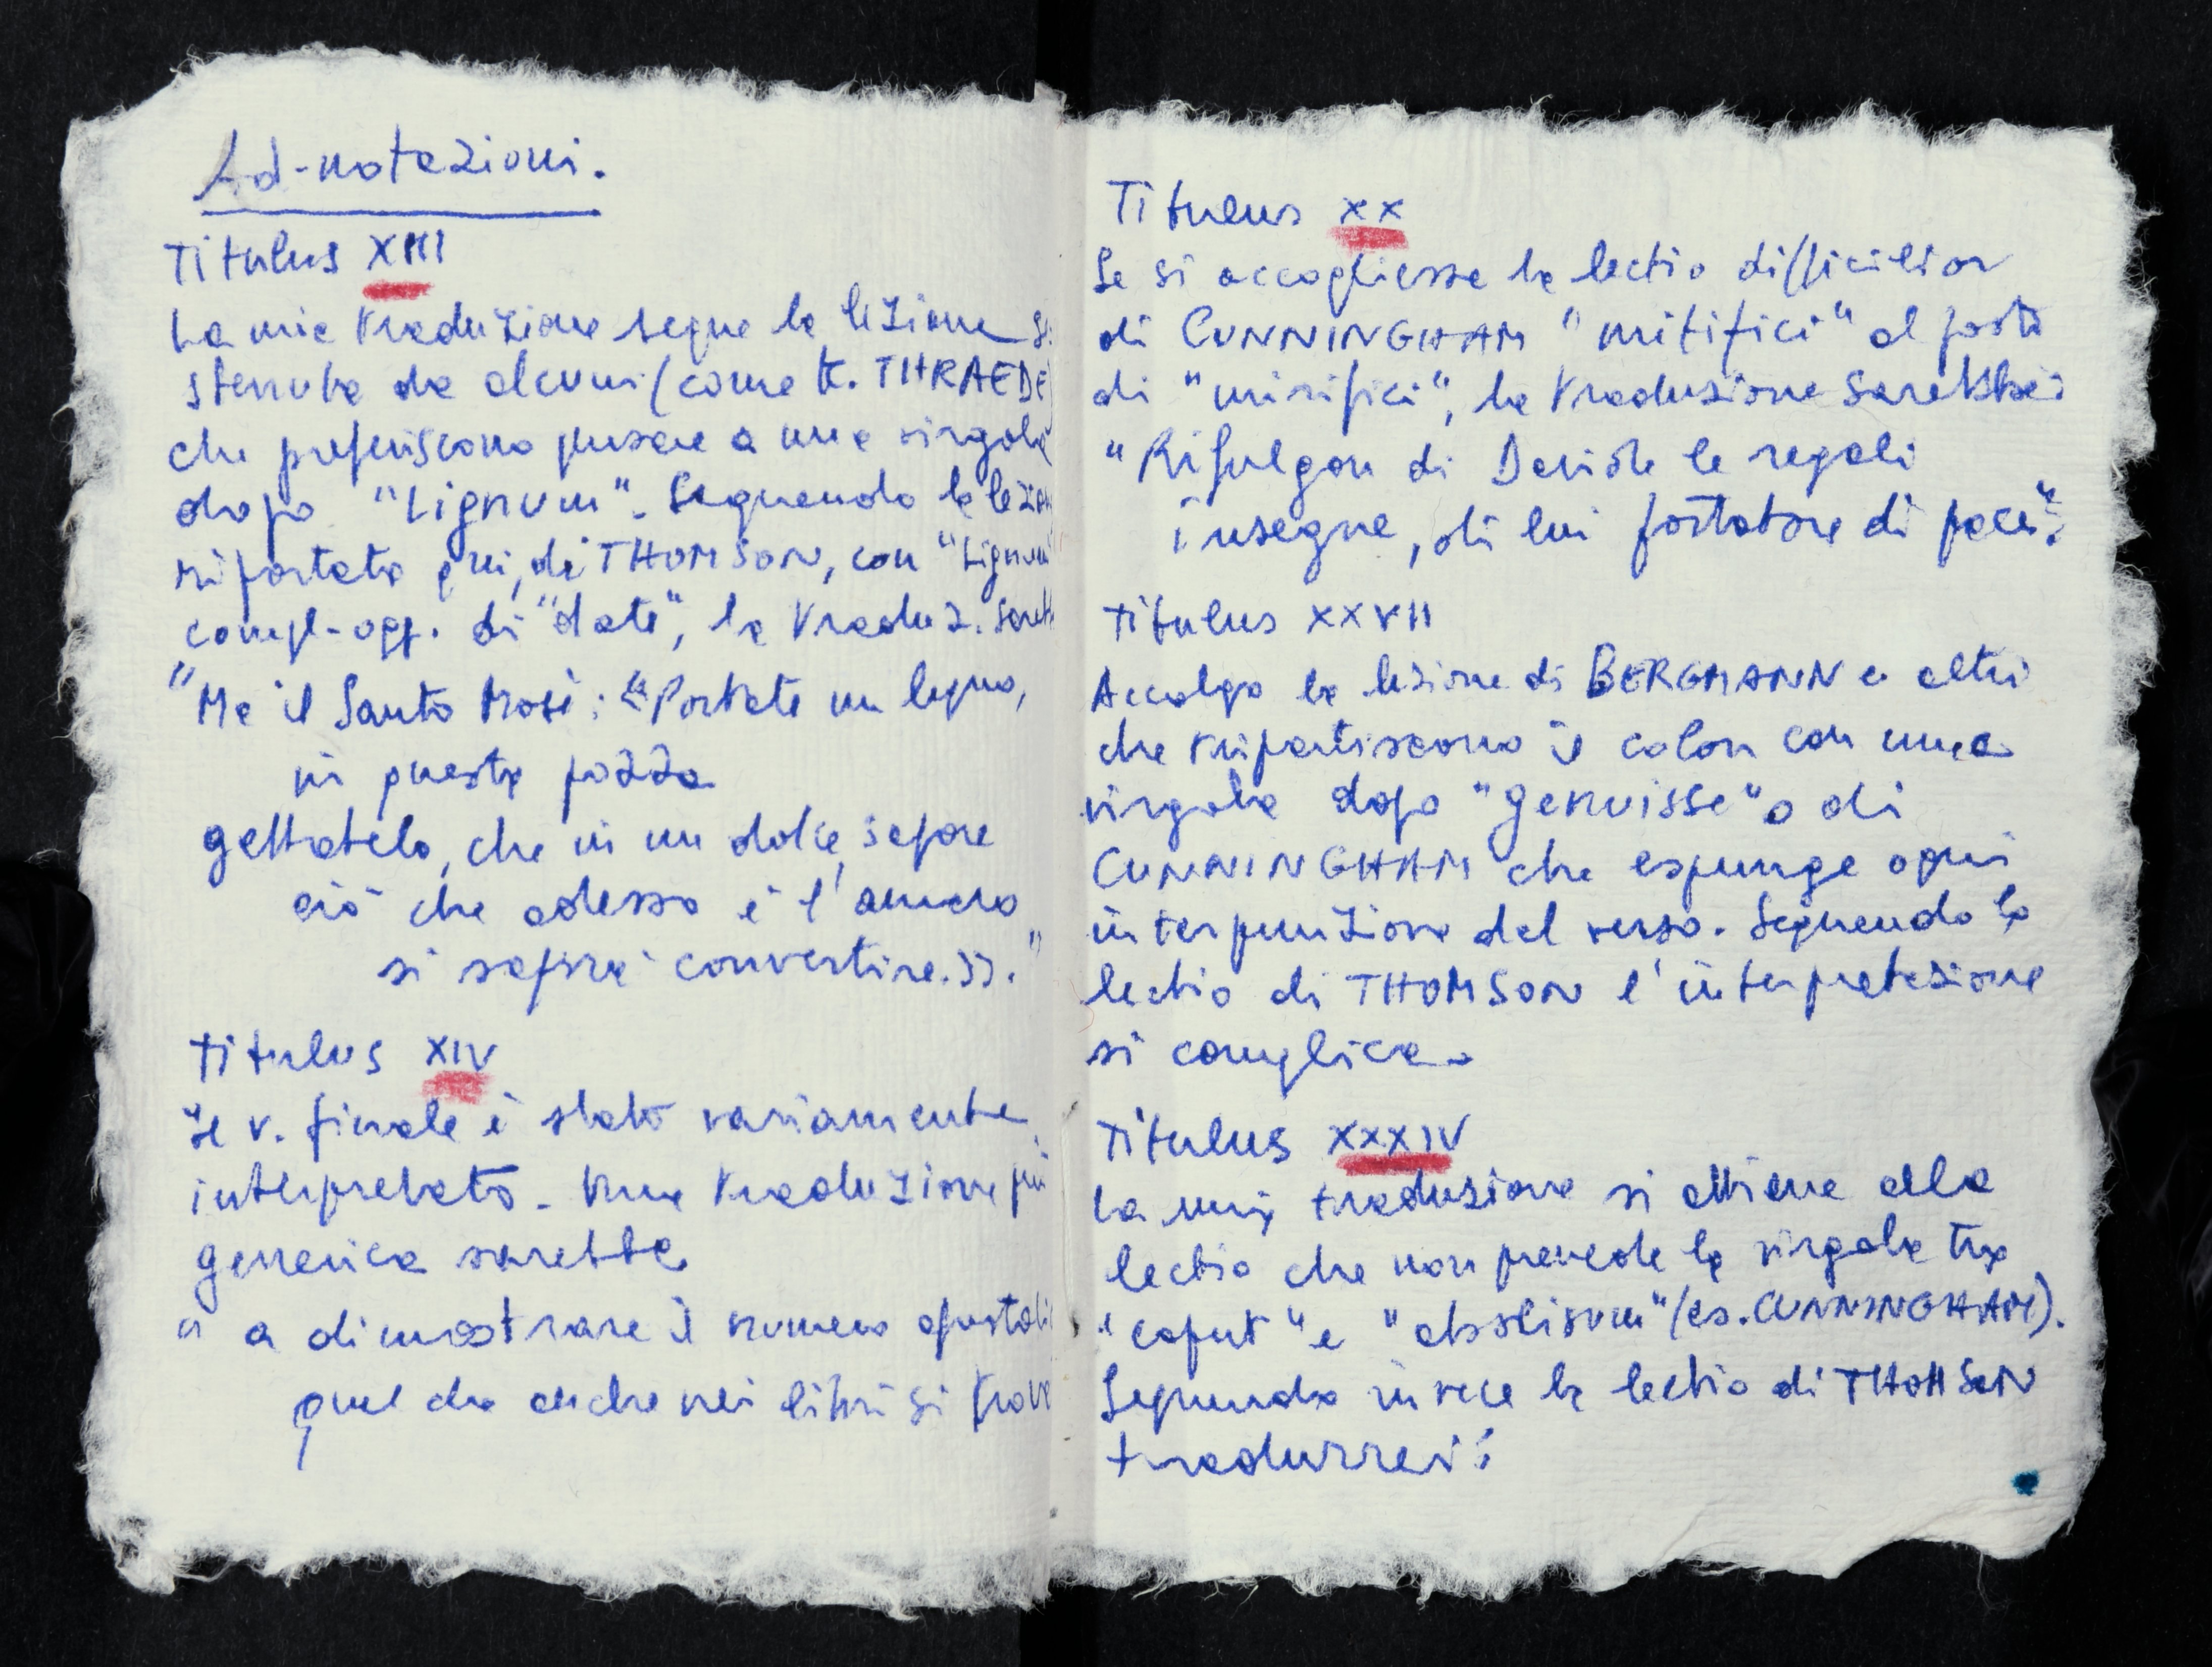 Ad-notazioni.
Titulus XIII
La mia traduzione segue la lezione so
stenuta da alcuni (come K. THRAEDE)
che preferiscono pensare a una virgola
dopo "Lignum". Seguendo la lezion
riportata qui, di THOMSON, con "Lignum"
compl-ogg. di "date", la traduz. sareb
"Ma il Santo Mosè: «Portate un legno,
in questa pozza
gettatelo, che in un dolce sapore
ciò che adesso è l'amaro
si saprà convertire.»."
Titulus XIV
Il v. finale è stato variamente
interpretato. Una traduzione più
generica sarebbe
" a dimostrare il numero apostoli
quel che anche nei libri si trova
Titulus XX
Se si accogliesse la lectio difficilior
di CUNNINGHAM "mitifici" al posto
di "mirifici", la traduzione sarebbe:
"Rifulgon di Davide le regali
insegne, di lui portatore di pace".
Titulus XXVII
Accolgo la lezione di BERGMANN e altri
che ripartiscono il colon con una
virgola dopo "genuisse" o di
CUNNINGHAM che espunge ogni
interpunzione dal verso. Seguendo la
lectio di THOMSON l'interpretazione
si complica.
Titulus XXXIV
La mia traduzione si attiene alla
lectio che non prevede la virgola tra
"caput" e (es. CUNNINGHAM).
Seguendo invece la lectio di THOMSON
tradurrei: